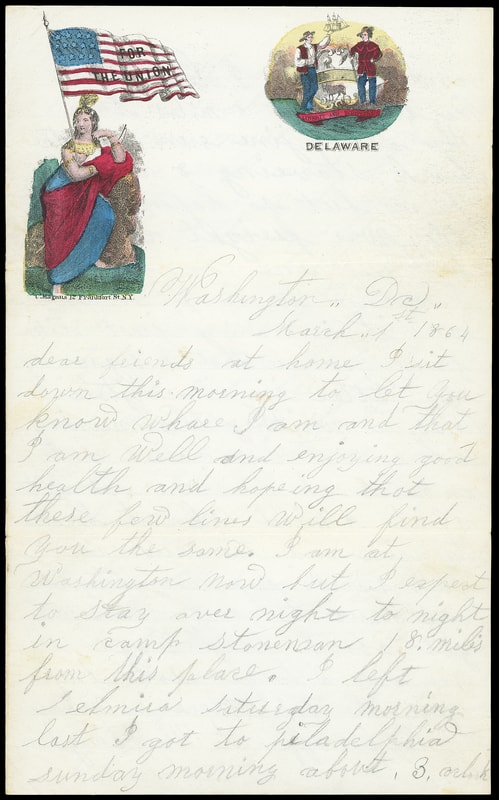 FOR
THE UNION
DELAWARE
C. Magnus 12 Frankfort St. N.Y.
Washington,, Dc,,
March. 1st 1864
dear friends at home I sit
down this morning to let you
know whare I am and that
I am well and enjoying good
health and hopeing that
these few lines will find
you the same. I am at
Washington now but I expect
to stay over night to night
in camp stoneman 18. miles
from this place. I left
elmira saturday morning
last I got to piladelphia
sunday morning about. 3, oclok